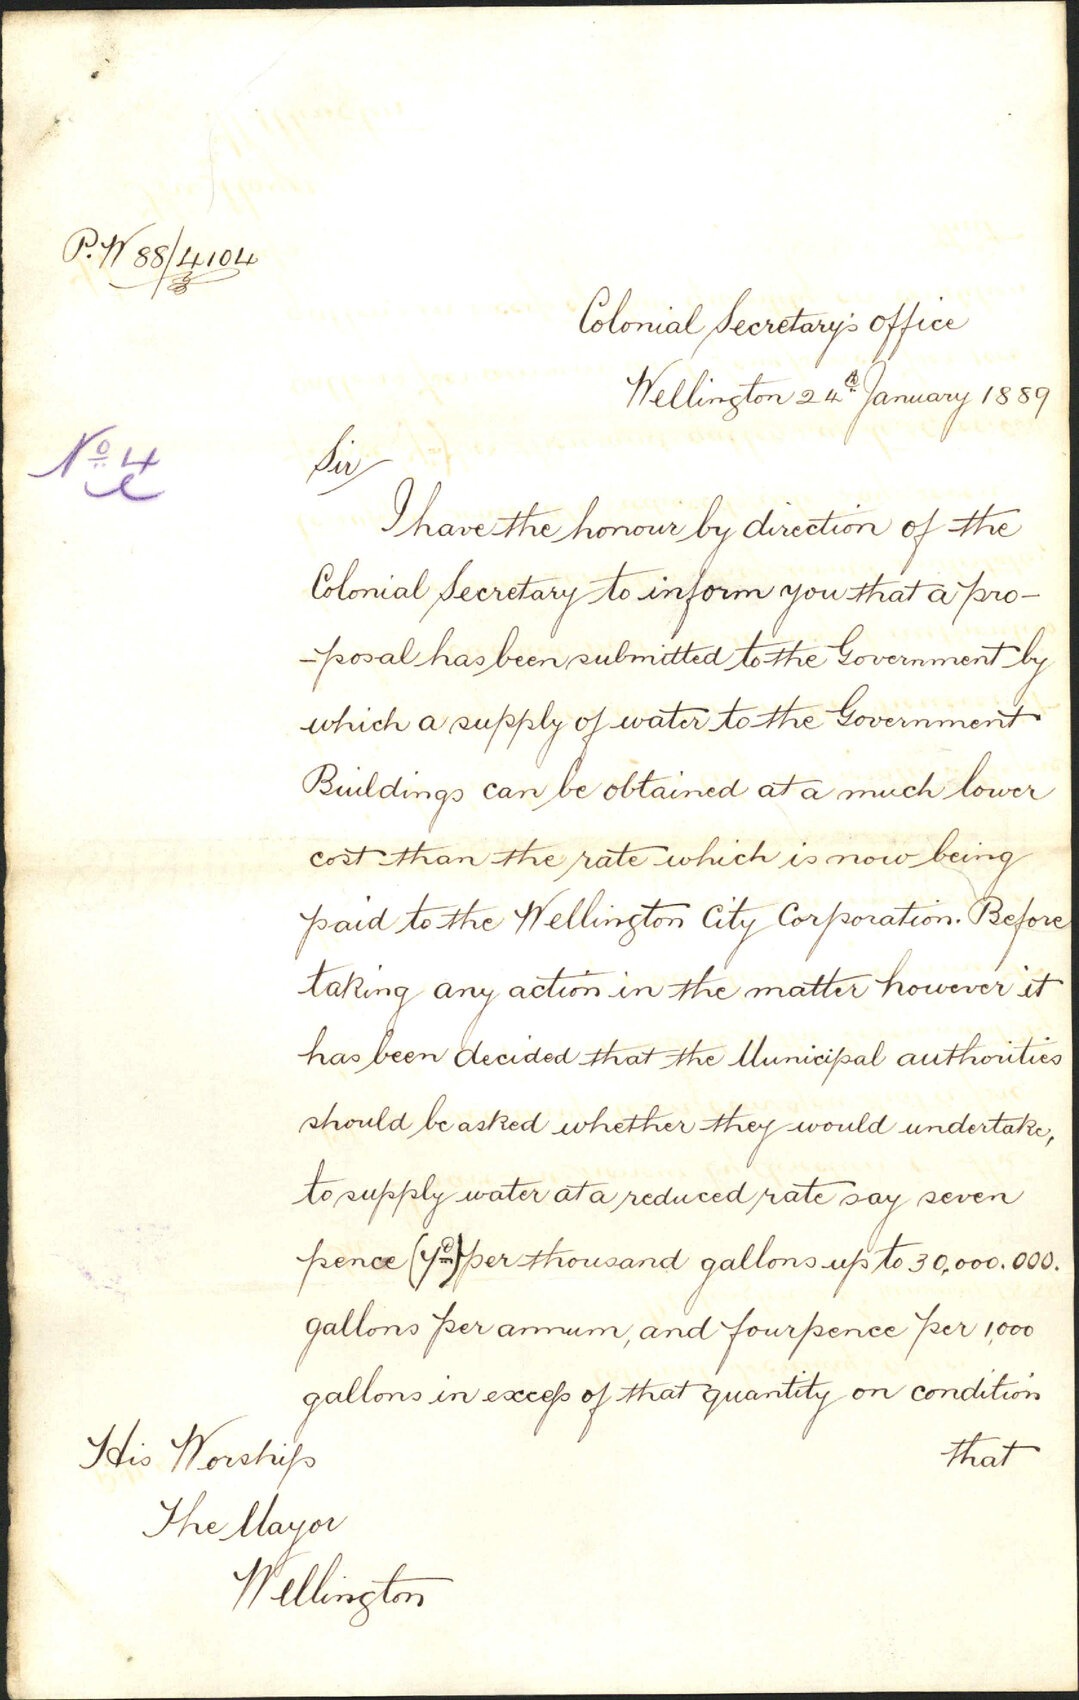 P.W 88/4104
Colonial Secretary's Office
Wellington 24th January 1889
No 4
Sir
I have the honour by direction of the
Colonial Secretary to inform you that a pro-
-posal has been submitted to the Government by
which a supply of water to the Government
Buildings can be obtained at a much lower
cost than the rate which is now being
paid to the Wellington City Corporation. Before
taking any action in the matter however it
has been decided that the Municipal authorities
should be asked whether they would undertake,
to supply water at a reduced rate say seven
pence (7d) per thousand gallons up to 30,000.000.
gallons per annum, and fourpence per 1,000
gallons in excess of that quantity on condition
that
His Worship
The Mayor
Wellington